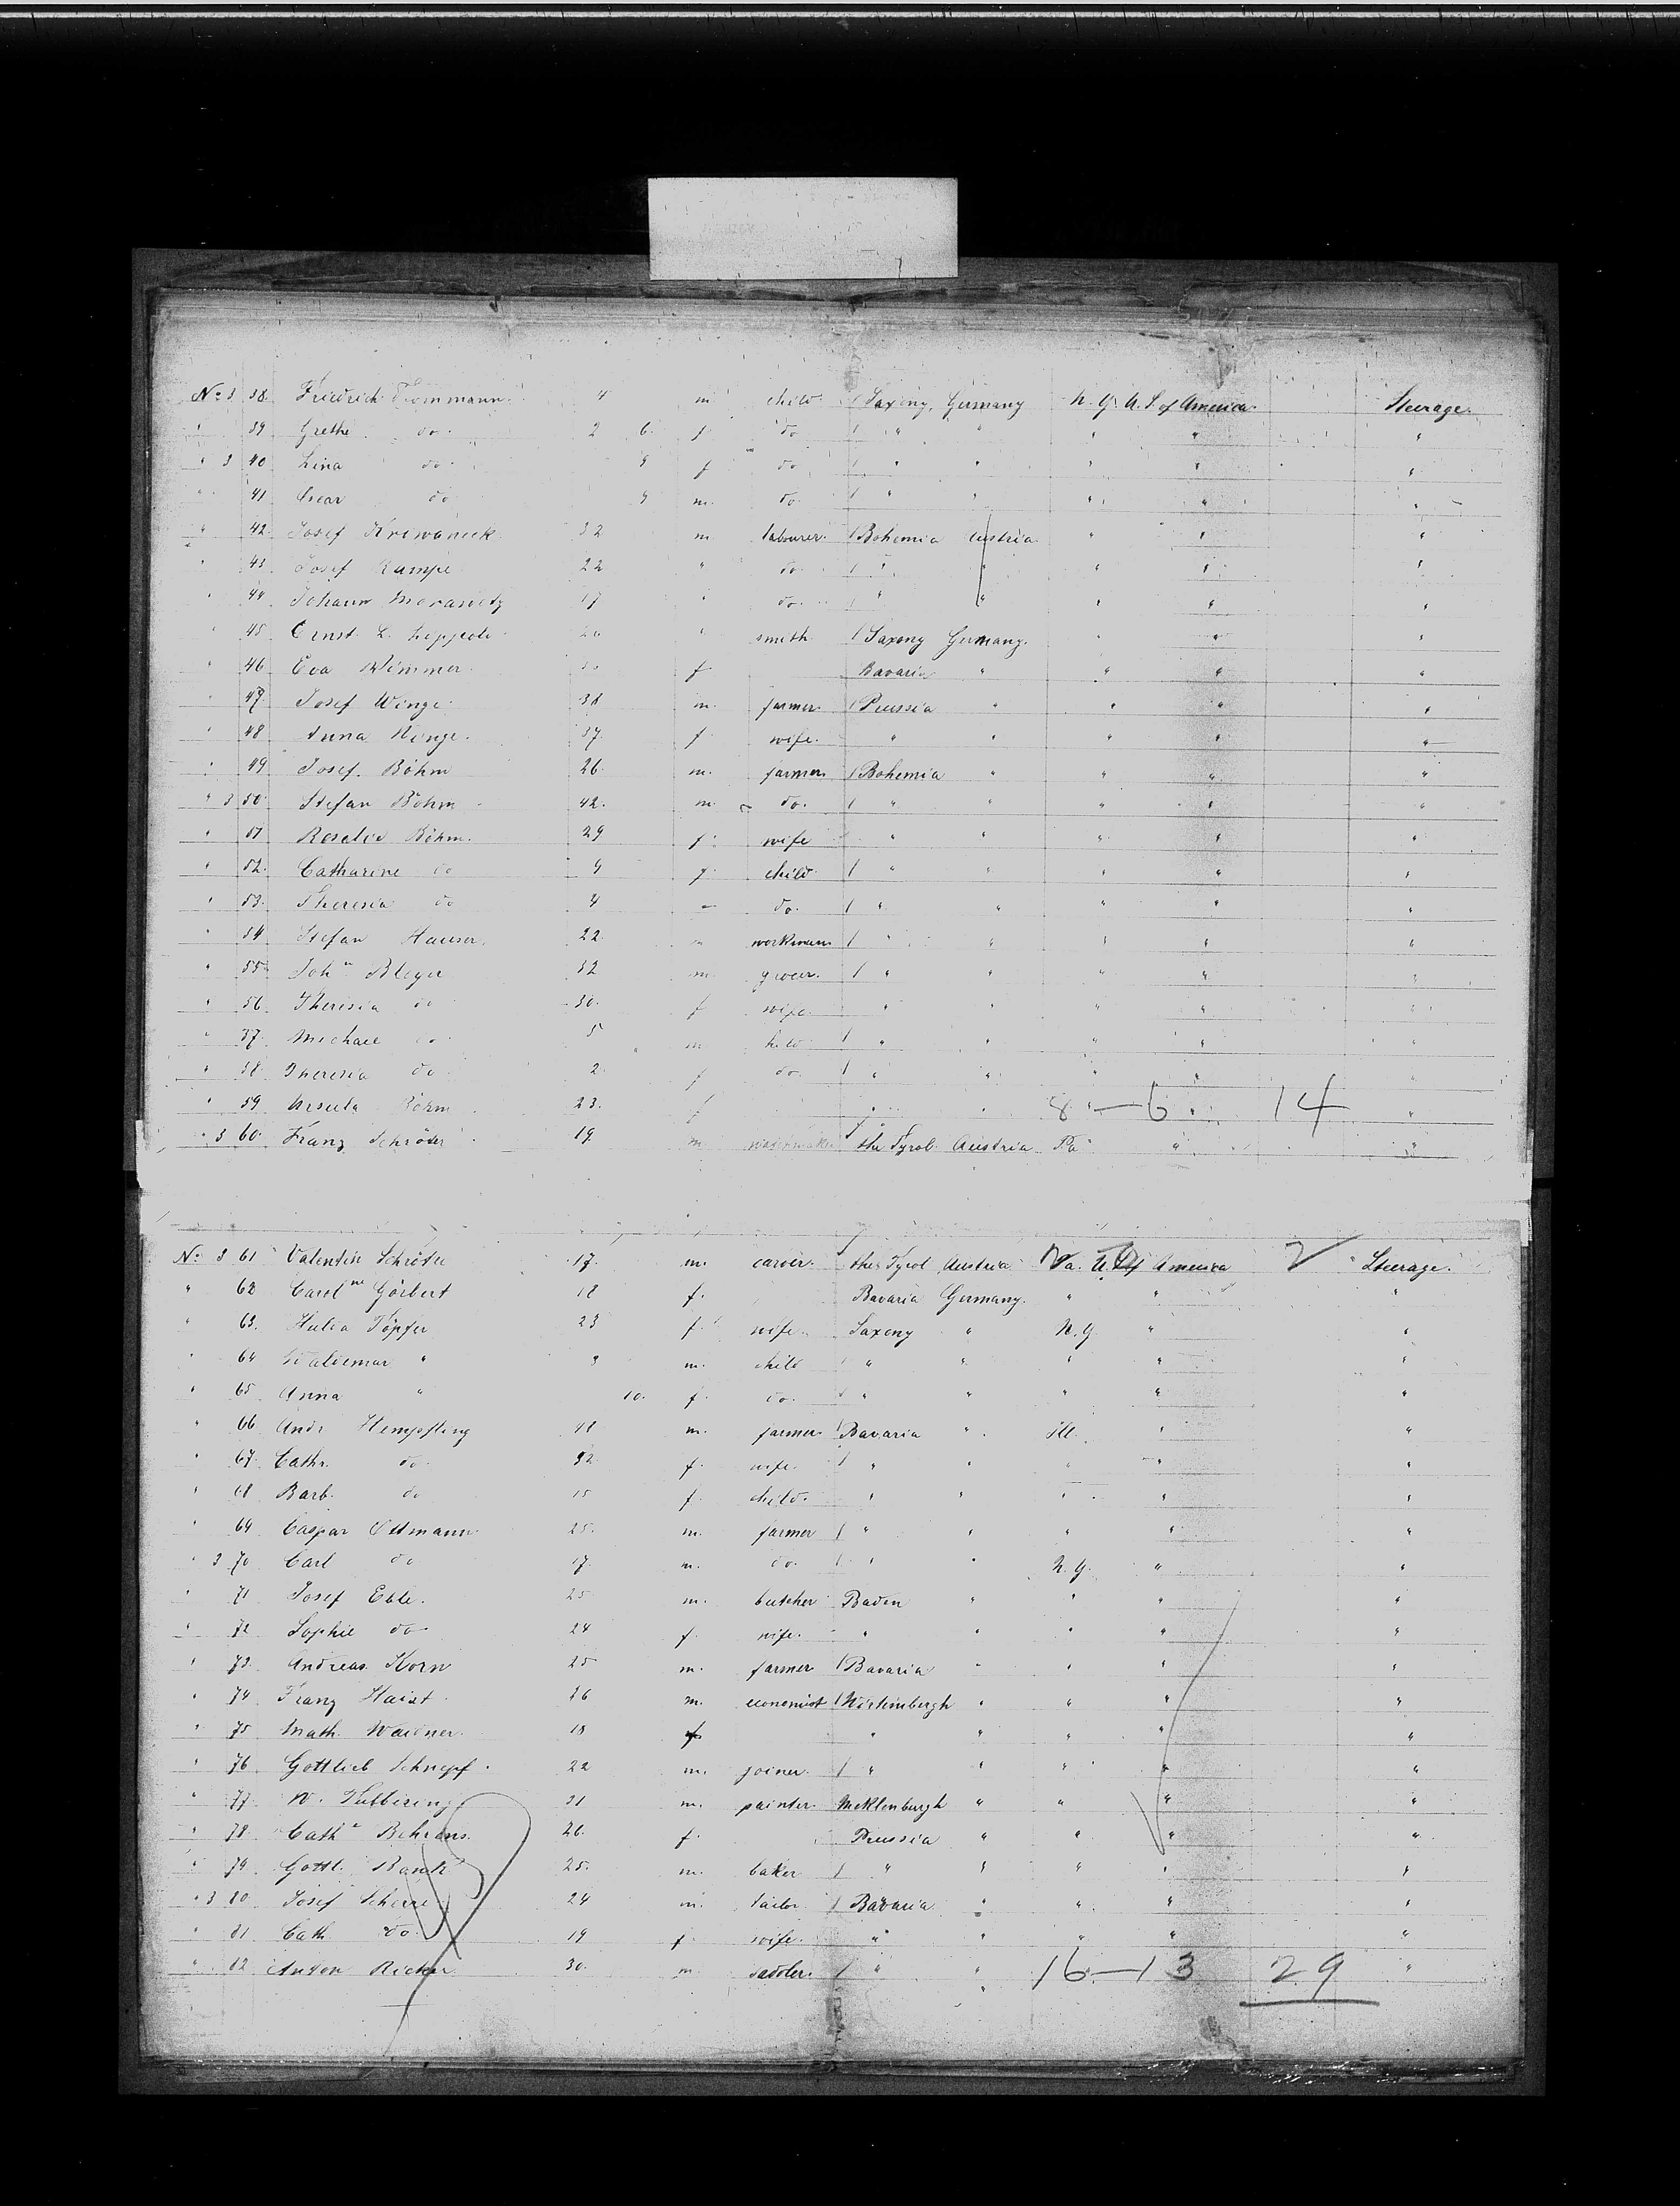 No 3 38 Friedrich Trommann. 4 m child. / Saxony, Germany N. Y. U. S. of America. Steerage.
" 39 Grethe do. 2 6. f do / " " " " "
" 3 40 Lina do. 9 f do / " " " " "
" 41 Oscar do 9 m. do. / " " " " "
" 42. Josef Kriwaneck 32 m labourer. / Bohemia Austria " " "
" 43. Josef Kampe 22 " do. / " " " " "
" 44 Johann Morawetz 17 " do. / " " " " "
" 45. Ernst L. Leppold " smith / Saxony Germany. " " "
" 46 Eva Wimmer. f Bavaria " " " "
" 47 Josef Winge. 38 m. farmer. / Prussia " " " "
" 48 Anna Winge. 37. f wife. " " " " "
" 49 Josef. Böhm 26. m. farmer. / Bohemia " " " "
" 3 50. Stefan Böhm 42. m. do. / " " " " "
" 51 Rosalie Böhm. 29 f. wife " " " " "
" 52. Catharine do 9 f. child / " " " " "
" 53. Theresia do 4 – do. / " " " " "
" 54 Stefan Hauser. 22. m workman / " " " " "
" 55. John Bleyer 32 m. grocer. / " " " " "
" 56 Theresia do 30. f wife. " " " " "
" 57. Michael do. 5 m child / " " " " "
" 58. Theresia do 2. f do. / " " " " "
" 59 Ursula Böhm 23. f " " 8 — 6 14 "
" 3 60. Franz Schröder 19 m / the Tyrol Austria Pa " "
No 3 61 Valentin Schröder 17. m. carver. the Tyrol Austria Pa. U. S. of America 2 Steerage.
" 62 Carolne Görbert 18 f. Bavaria Germany. " " "
" 63. Hulda Töpfer 23 f. wife. Saxony " N. Y. " "
" 64 Waldemar " 3 m. child / " " " " "
" 65 Anna " 10. f. do. / " " " " "
" 66 Andr. Hempfling 48 m. farmer. / Bavaria " Ill. " "
" 67. Cathr. do. 52 f. wife. / " " " " "
" 68 Barb. do 15 f. child. " " " " "
" 69. Caspar Ottmann 25. m. farmer / " " " " "
" 3 70. Carl do 17. m. do. / " " N. Y. " "
" 71 Josef Eble. 25 m. butcher Baden " " " "
" 72 Sophie do 24 f. wife. " " " " "
" 73. Andreas Korn 25 m. farmer / Bavaria " " " "
" 74. Franz Haist. 26 m. economist / Würtembergh " " " "
" 75 Math. Waidner. 18 f " " " " "
" 76 Gottlieb Schnepf. 22 m. joiner. / " " " " "
" 77. W. 31 m. painter. Meklenburgh " " " "
" 78. Catha Behrens. 26. f. Prussia " " " "
" 79. Gottl. Bank 25. m. baker / " " " " "
" 3 80. Josef Scherre 24 m. tailor / Bavaria " " " "
" 81. Cath. do. 19 f. wife. " " " " "
" 82 Anton Ricker 30. m. saddler. / " " 16 — 13 29 "